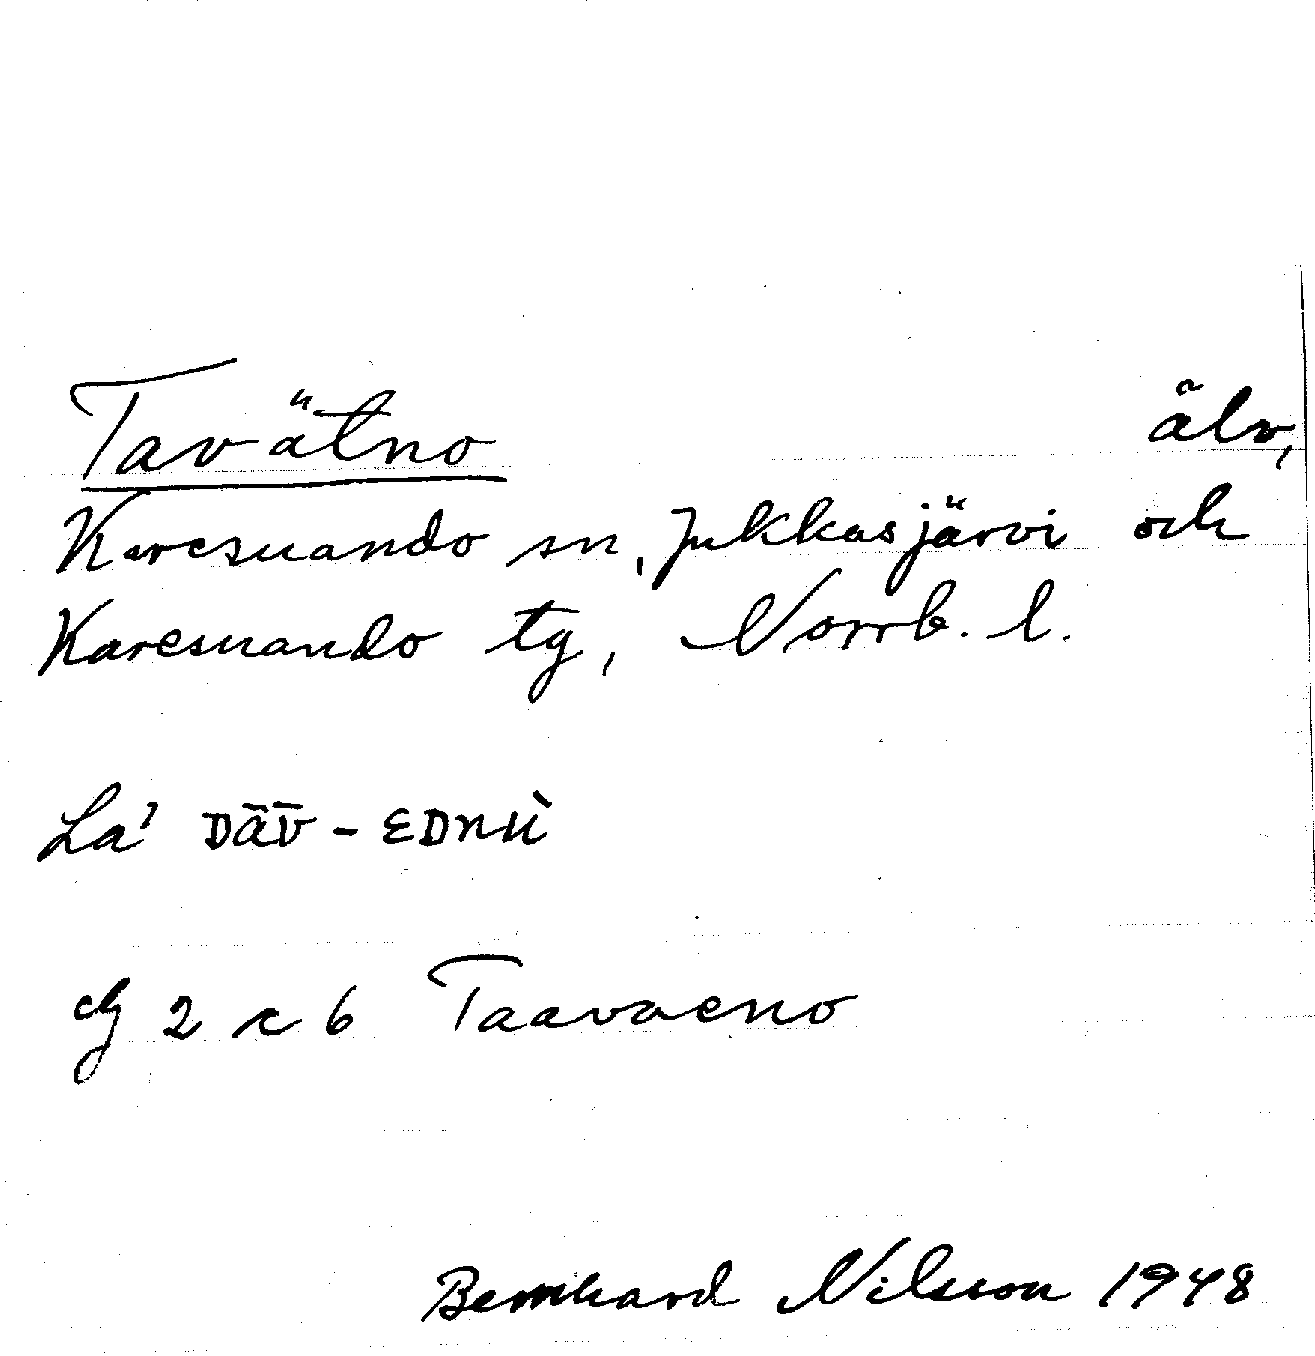 Tavätno älv,
Karesuando sn, Jukkasjärvi och
Karesuando tg, Norrb. l.
La' DÄV̄ - EDNU̇̀
cg 2 x 6 Taavaeno
Bernhard Nilsson 1948